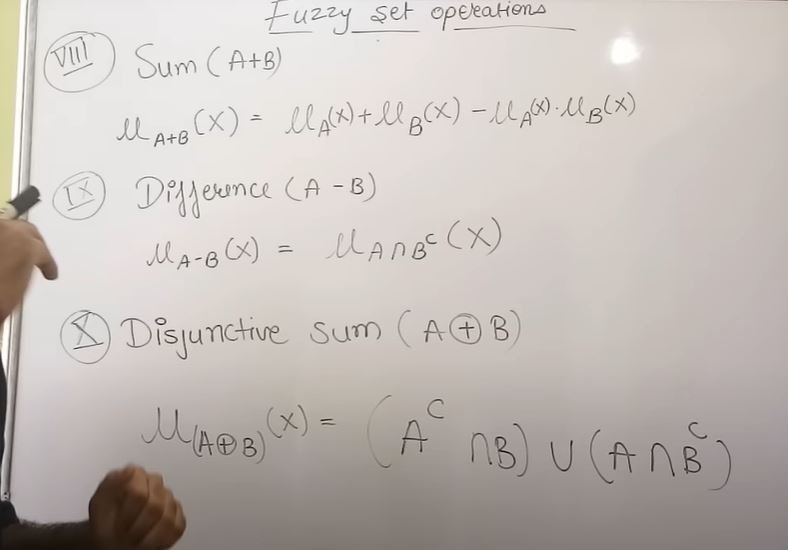 Fuzzy set operations
VIII Sum (A+B)
μ_A+B (x) = μ_A(x) + μ_B(x) - μ_A(x) · μ_B(x)
IX Difference (A - B)
μ_A-B (x) = μ_A∩B^c (x)
X Disjunctive sum (A ⊕ B)
μ_(A⊕B) (x) = (A^c ∩ B) ∪ (A ∩ B^c)